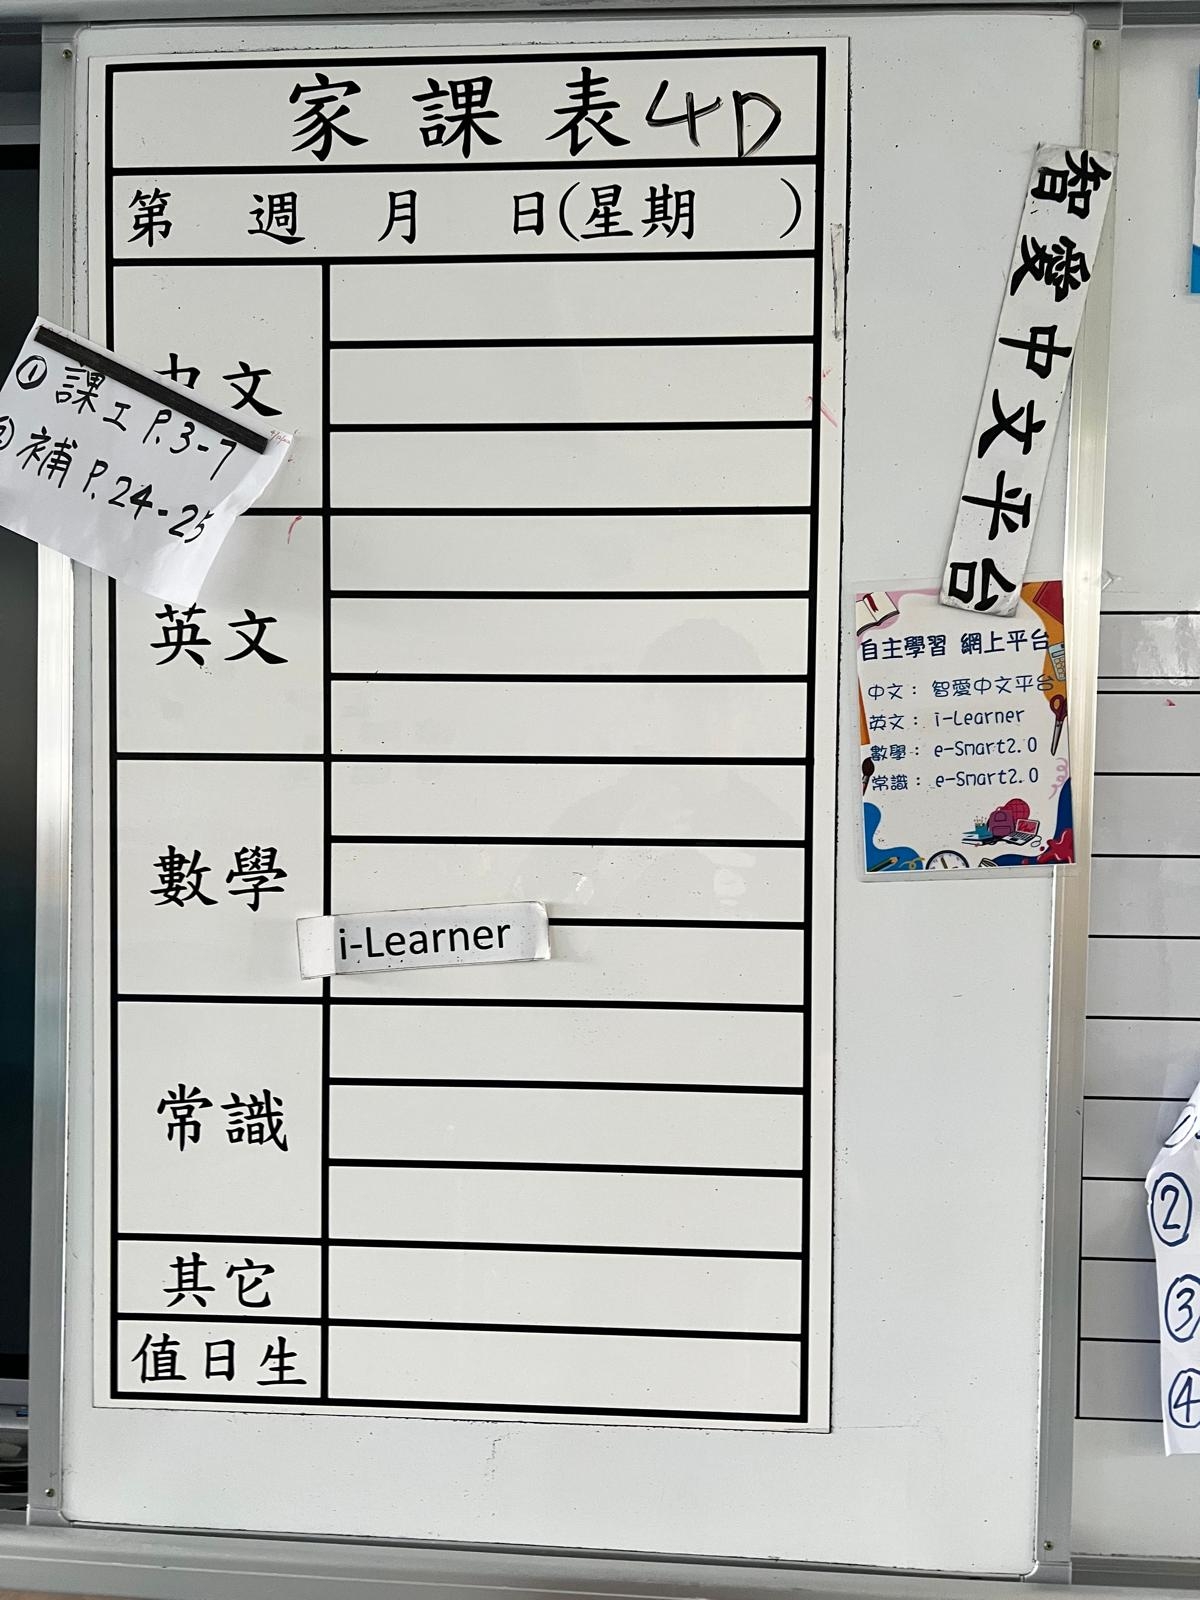 家課表 4D
第 週 月 日(星期 )
中文
① 課工 P.3-7
② 補 P.24-25
英文
數學
i-Learner
常識
其它
值日生
智愛中文平台
自主學習 網上平台
中文： 智愛中文平台
英文： i-Learner
數學： e-Smart2.0
常識： e-Smart2.0
②
③
④